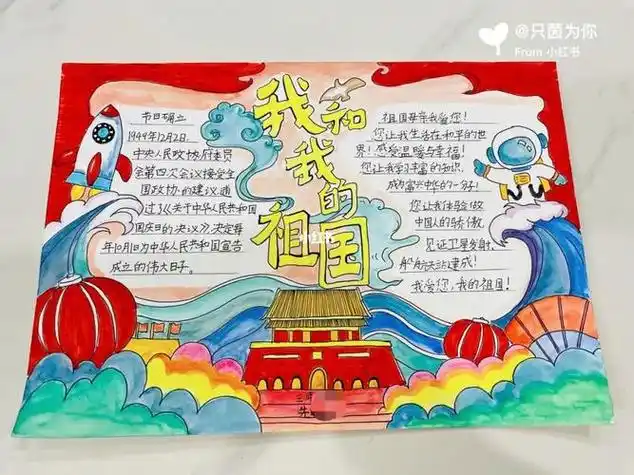 @只菌为你
From 小红书
我和我的祖国
小红书
节日确立
1949年12月2日,
中央人民政协府委员
会第四次会议接受全
国政协的建议,通
过了《关于中华人民共和国
国庆日的决议》,决定每
年10月1日为中华人民共和国宣告
成立的伟大日子。
祖国母亲我爱您!
您让我生活在和平的世
界!感受温暖与幸福!
您让我学习丰富的知识,
成为富兴中华的一分子!
您让我体验做
中国人的骄傲,
见证卫星发射,
船航天站建成!
我爱您,我的祖国!
三
朱